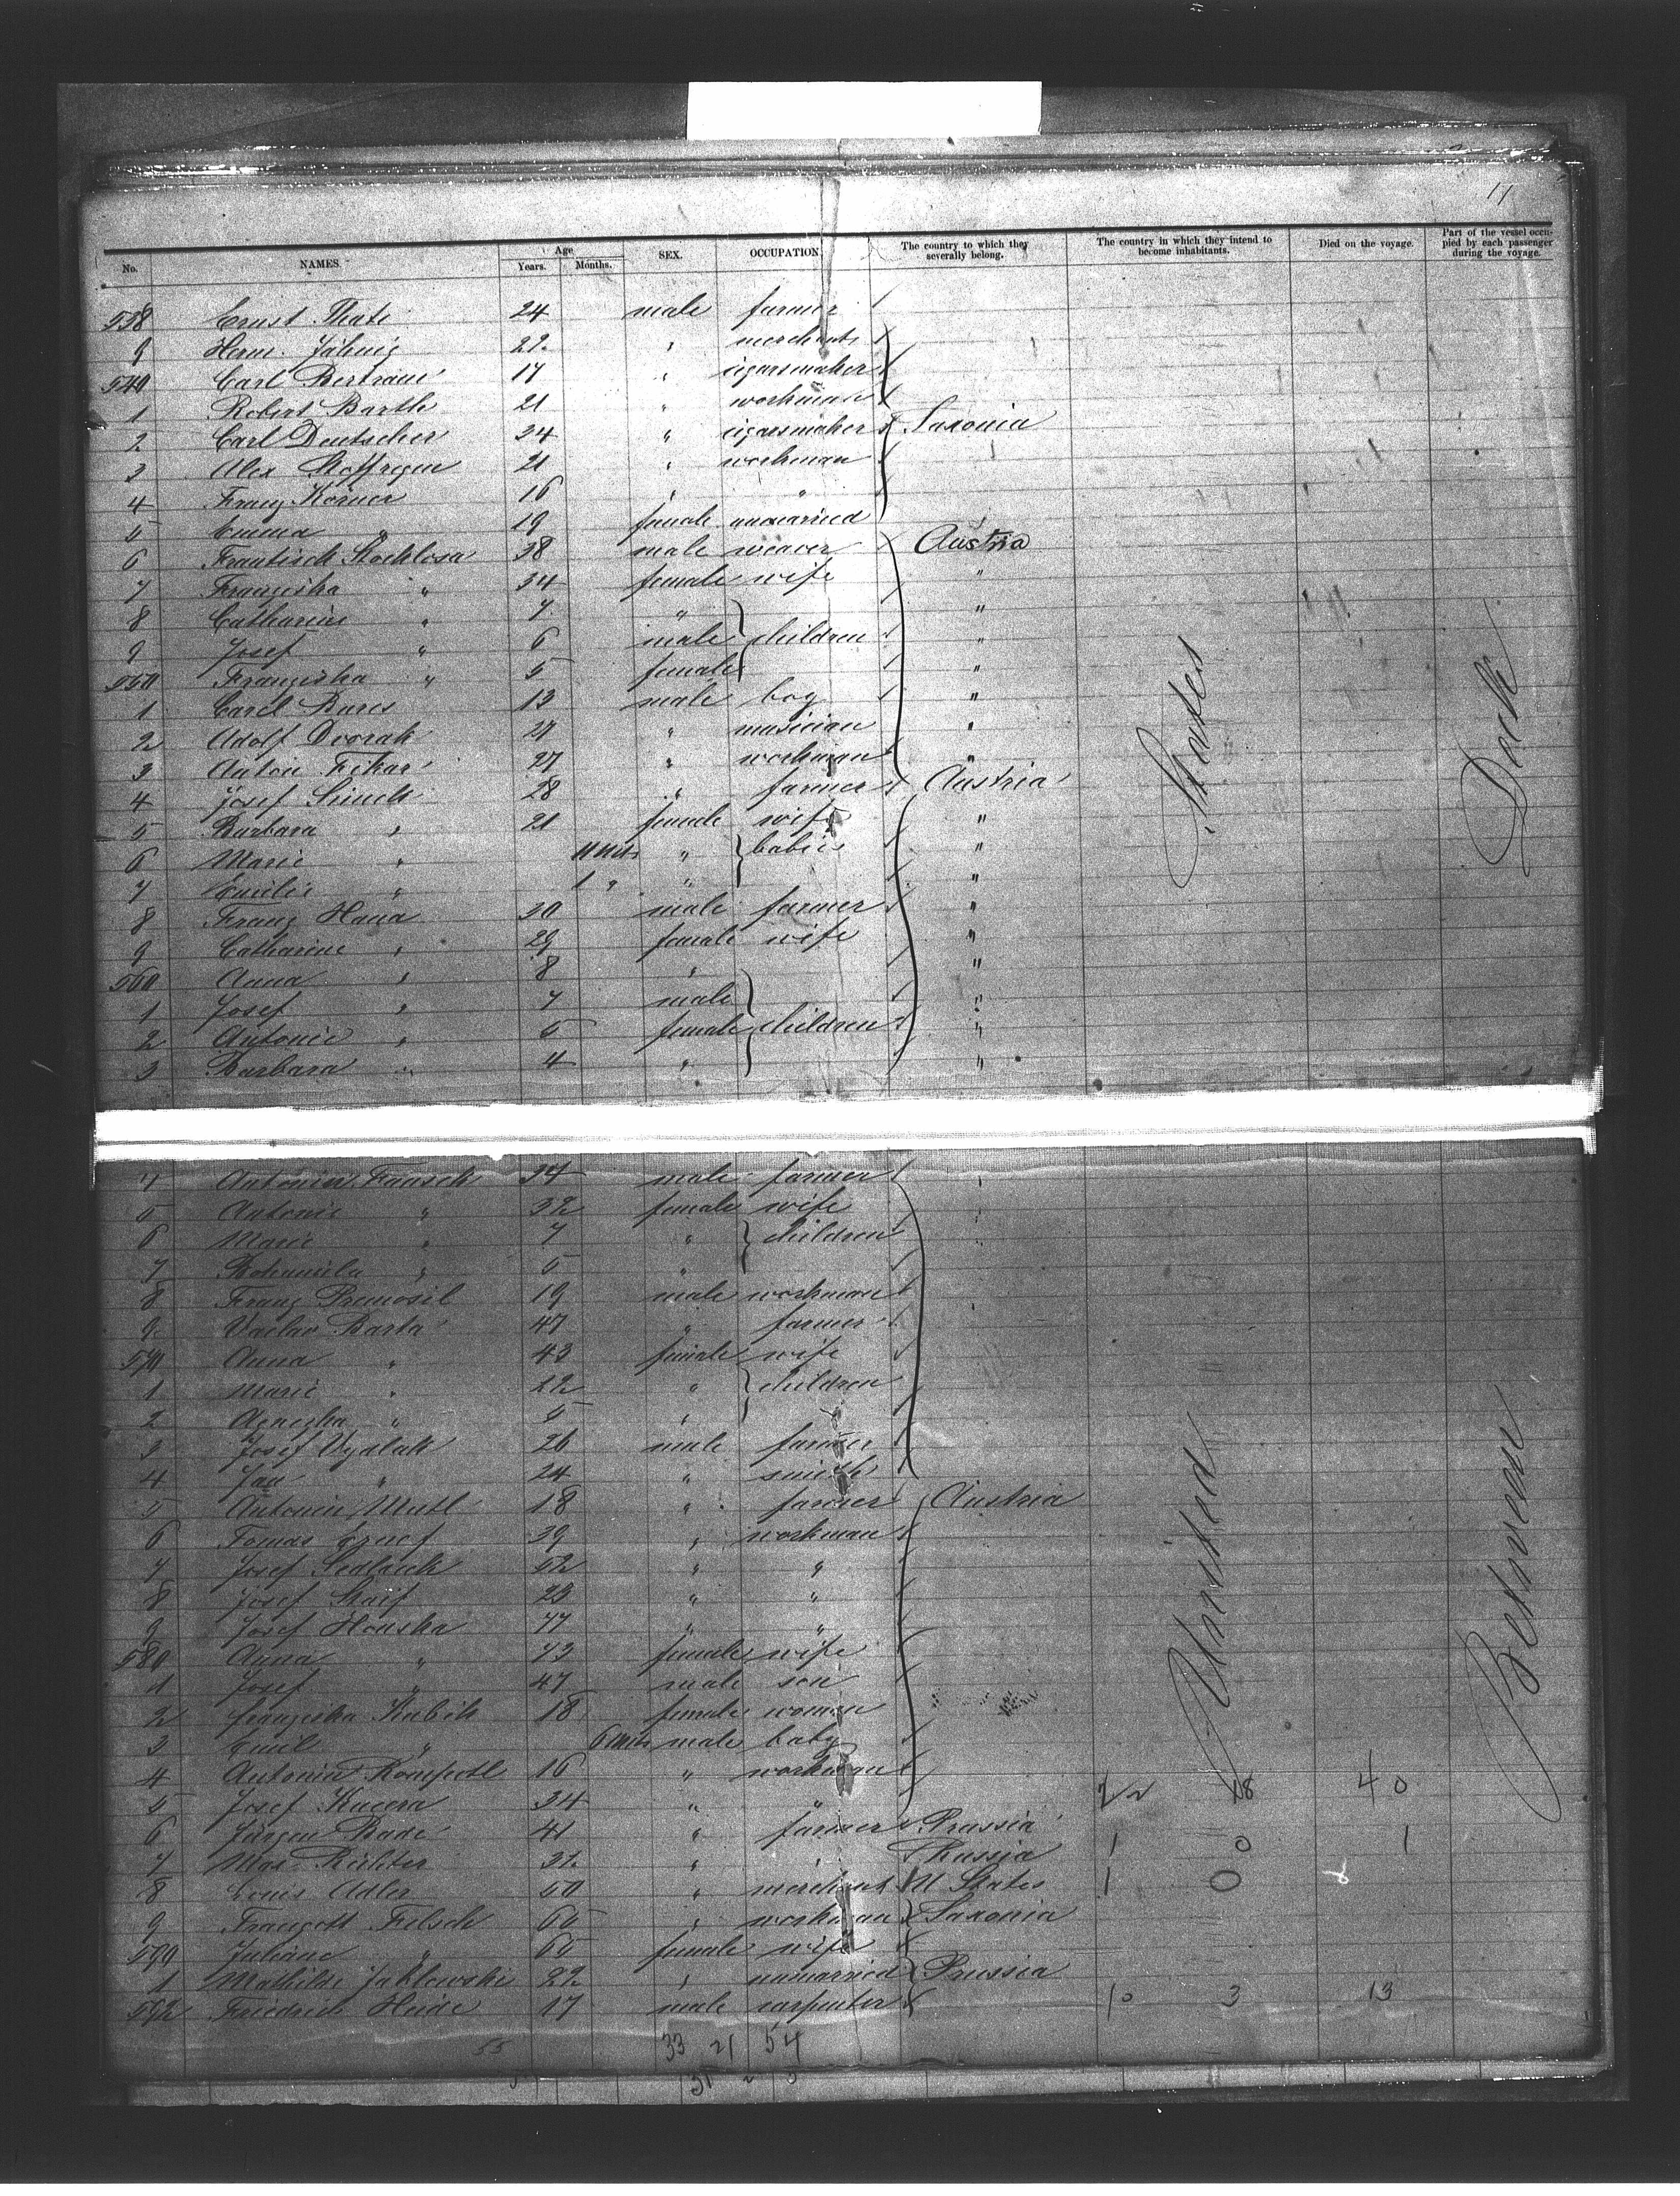 11
No. NAMES. Age Years. Months. SEX. OCCUPATION. The country to which they severally belong. The country in which they intend to become inhabitants. Died on the voyage. Part of the vessel occupied by each passenger during the voyage.
538 Ernst Thate 24 male farmer
9 Herm. Jähnig 22 " merchants
540 Carl Bertram 17 " cigarsmaker
1 Robert Barth 21 " workman
2 Carl Deutscher 34 " cigarsmaker Saxonia
3 Alex Steffregen 21 " workman
4 Franz Körner 16 " "
5 Emma " 19 female unmarried
6 Frantisek Stoklosa 38 male weaver Austria
7 Franziska " 34 female wife "
8 Catharine " 7 " "
9 Josef " 6 male children "
550 Franziska " 5 female "
1 Carel Bures 13 male boy "
2 Adolf Dvorak 27 " musician "
3 Anton Fikar 27 " workman "
4 Josef 28 " farmer Austria
5 Barbara " 21 female wife "
6 Marie " 11 mts " babies "
7 Emilie " 1 " " "
8 Franz Hana 30 male farmer "
9 Catharine " 29 female wife "
560 Anna " 8 " "
1 Josef " 7 male "
2 Antonie " 5 female children "
3 Barbara " 4 " "
4 Antonin 34 male farmer
5 Antonie " 32 female wife
6 Marie " 7 " children
7 Bohumila " 5 "
8 Franz Premosil 19 male workman
9 Vaclav Barta 47 " farmer
570 Anna " 43 female wife
1 Marie " 22 " children
2 Agnezka " 5 "
3 Josef Vydlak 26 male farmer
4 Jan " 24 " smith
5 Antonin Mutl 18 " farmer Austria
6 Tomas 39 " workman
7 Josef Sedlacek 52 " "
8 Josef Staif 23 " "
9 Josef Houska 77 " "
580 Anna " 73 female wife
1 Josef " 47 male son
2 Franziska Kubik 18 female woman
3 Emil " 6 mts male baby
4 Antonin 16 " workman
5 Josef Kucera 34 " " 22 18 40
6 Jürgen Bade 41 " farmer Prussia
7 Max Richter 31 " " Russia 1 0 1
8 Louis Adler 50 " merchant U States 1 0
9 Traugott Felsch 65 " workman Saxonia
590 Juliane " 65 female wife
1 Mathilde Jaklewski 22 " unmarried Prussia
592 Friedrich Heide 17 male carpenter 10 3 13
United States
Between Deck
55 33 21 54